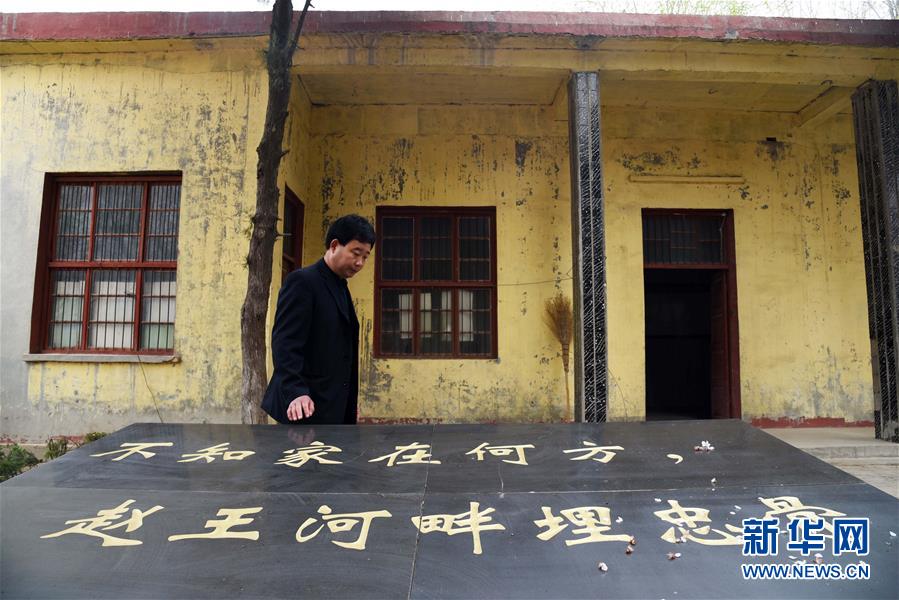 不知家在何方，
赵王河畔埋忠骨
新华网
WWW.NEWS.CN